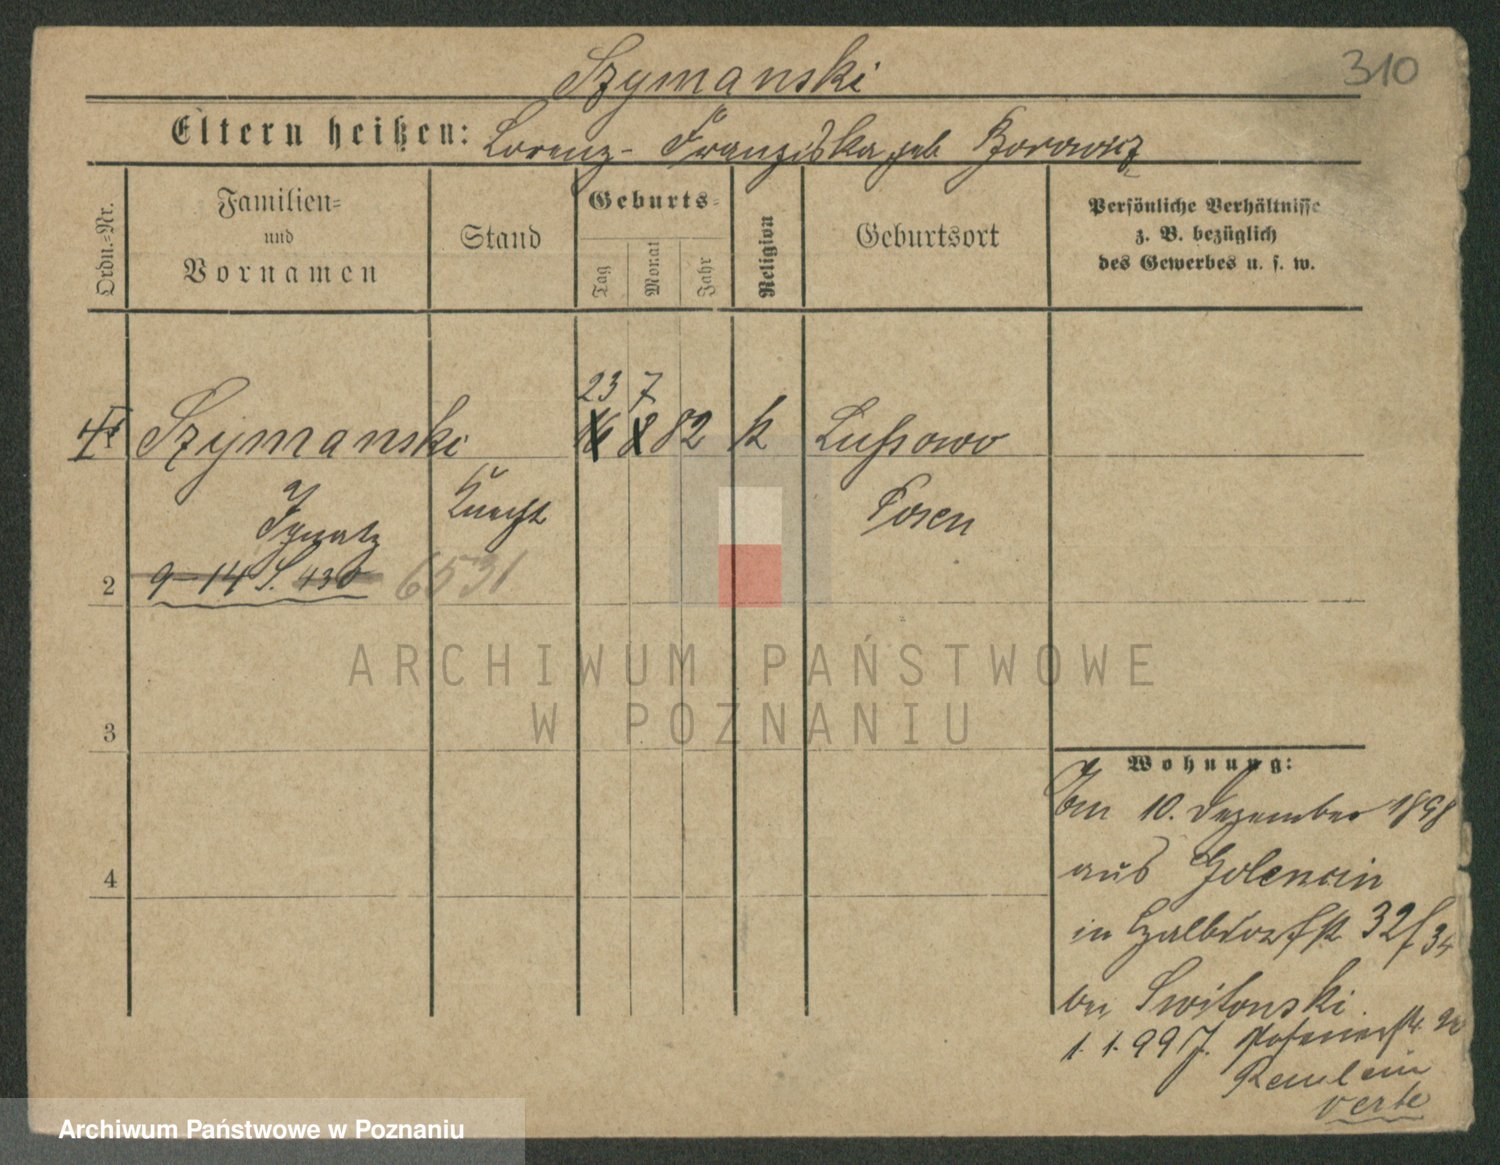 310
Szymanski
Eltern heißen: Lorenz - Franziska geb Borowicz
Ordn.=Nr.
Familien=
und
Vornamen
Stand
Geburts=
Tag
Monat
Jahr
Religion
Geburtsort
Persönliche Verhältnisse
z. B. bezüglich
des Gewerbes u. s. w.
23 7
Szymanski 16 8 82 k Lussowo
Ignatz Knecht Posen
2 9-14 S. 436 6531
3
4
Wohnung:
am 10. Dezember 1898
aus Golencin
in 32/34
bei Switonski
1. 1. 99 J. Posenerstr. 20
verte
ARCHIWUM PAŃSTWOWE
W POZNANIU
Archiwum Państwowe w Poznaniu